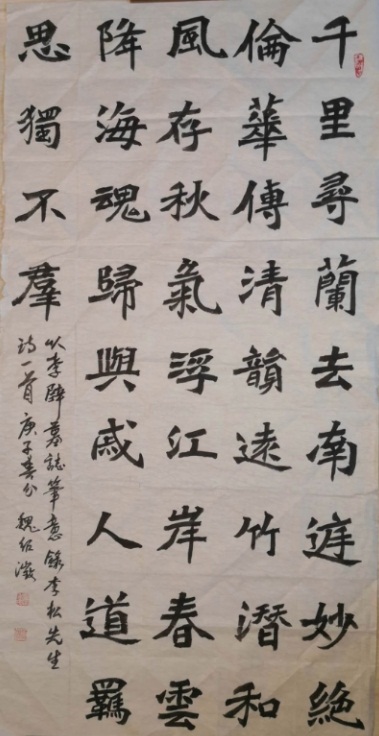 千里尋蘭去南遊妙絶
倫華傳清韻遠竹潛和
風存秋氣浮江岸春雲
降海魂歸與戚人道羈
思獨不羣
以李璧墓誌筆意錄李松先生
詩一首 庚子春分 魏紹